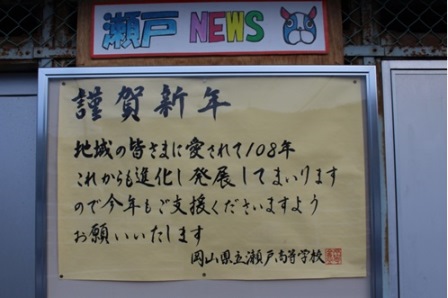 瀬戸 NEWS
謹賀新年
地域の皆さまに愛されて108年
これからも進化し発展してまいります
ので今年もご支援くださいますよう
お願いいたします
岡山県立瀬戸高等学校